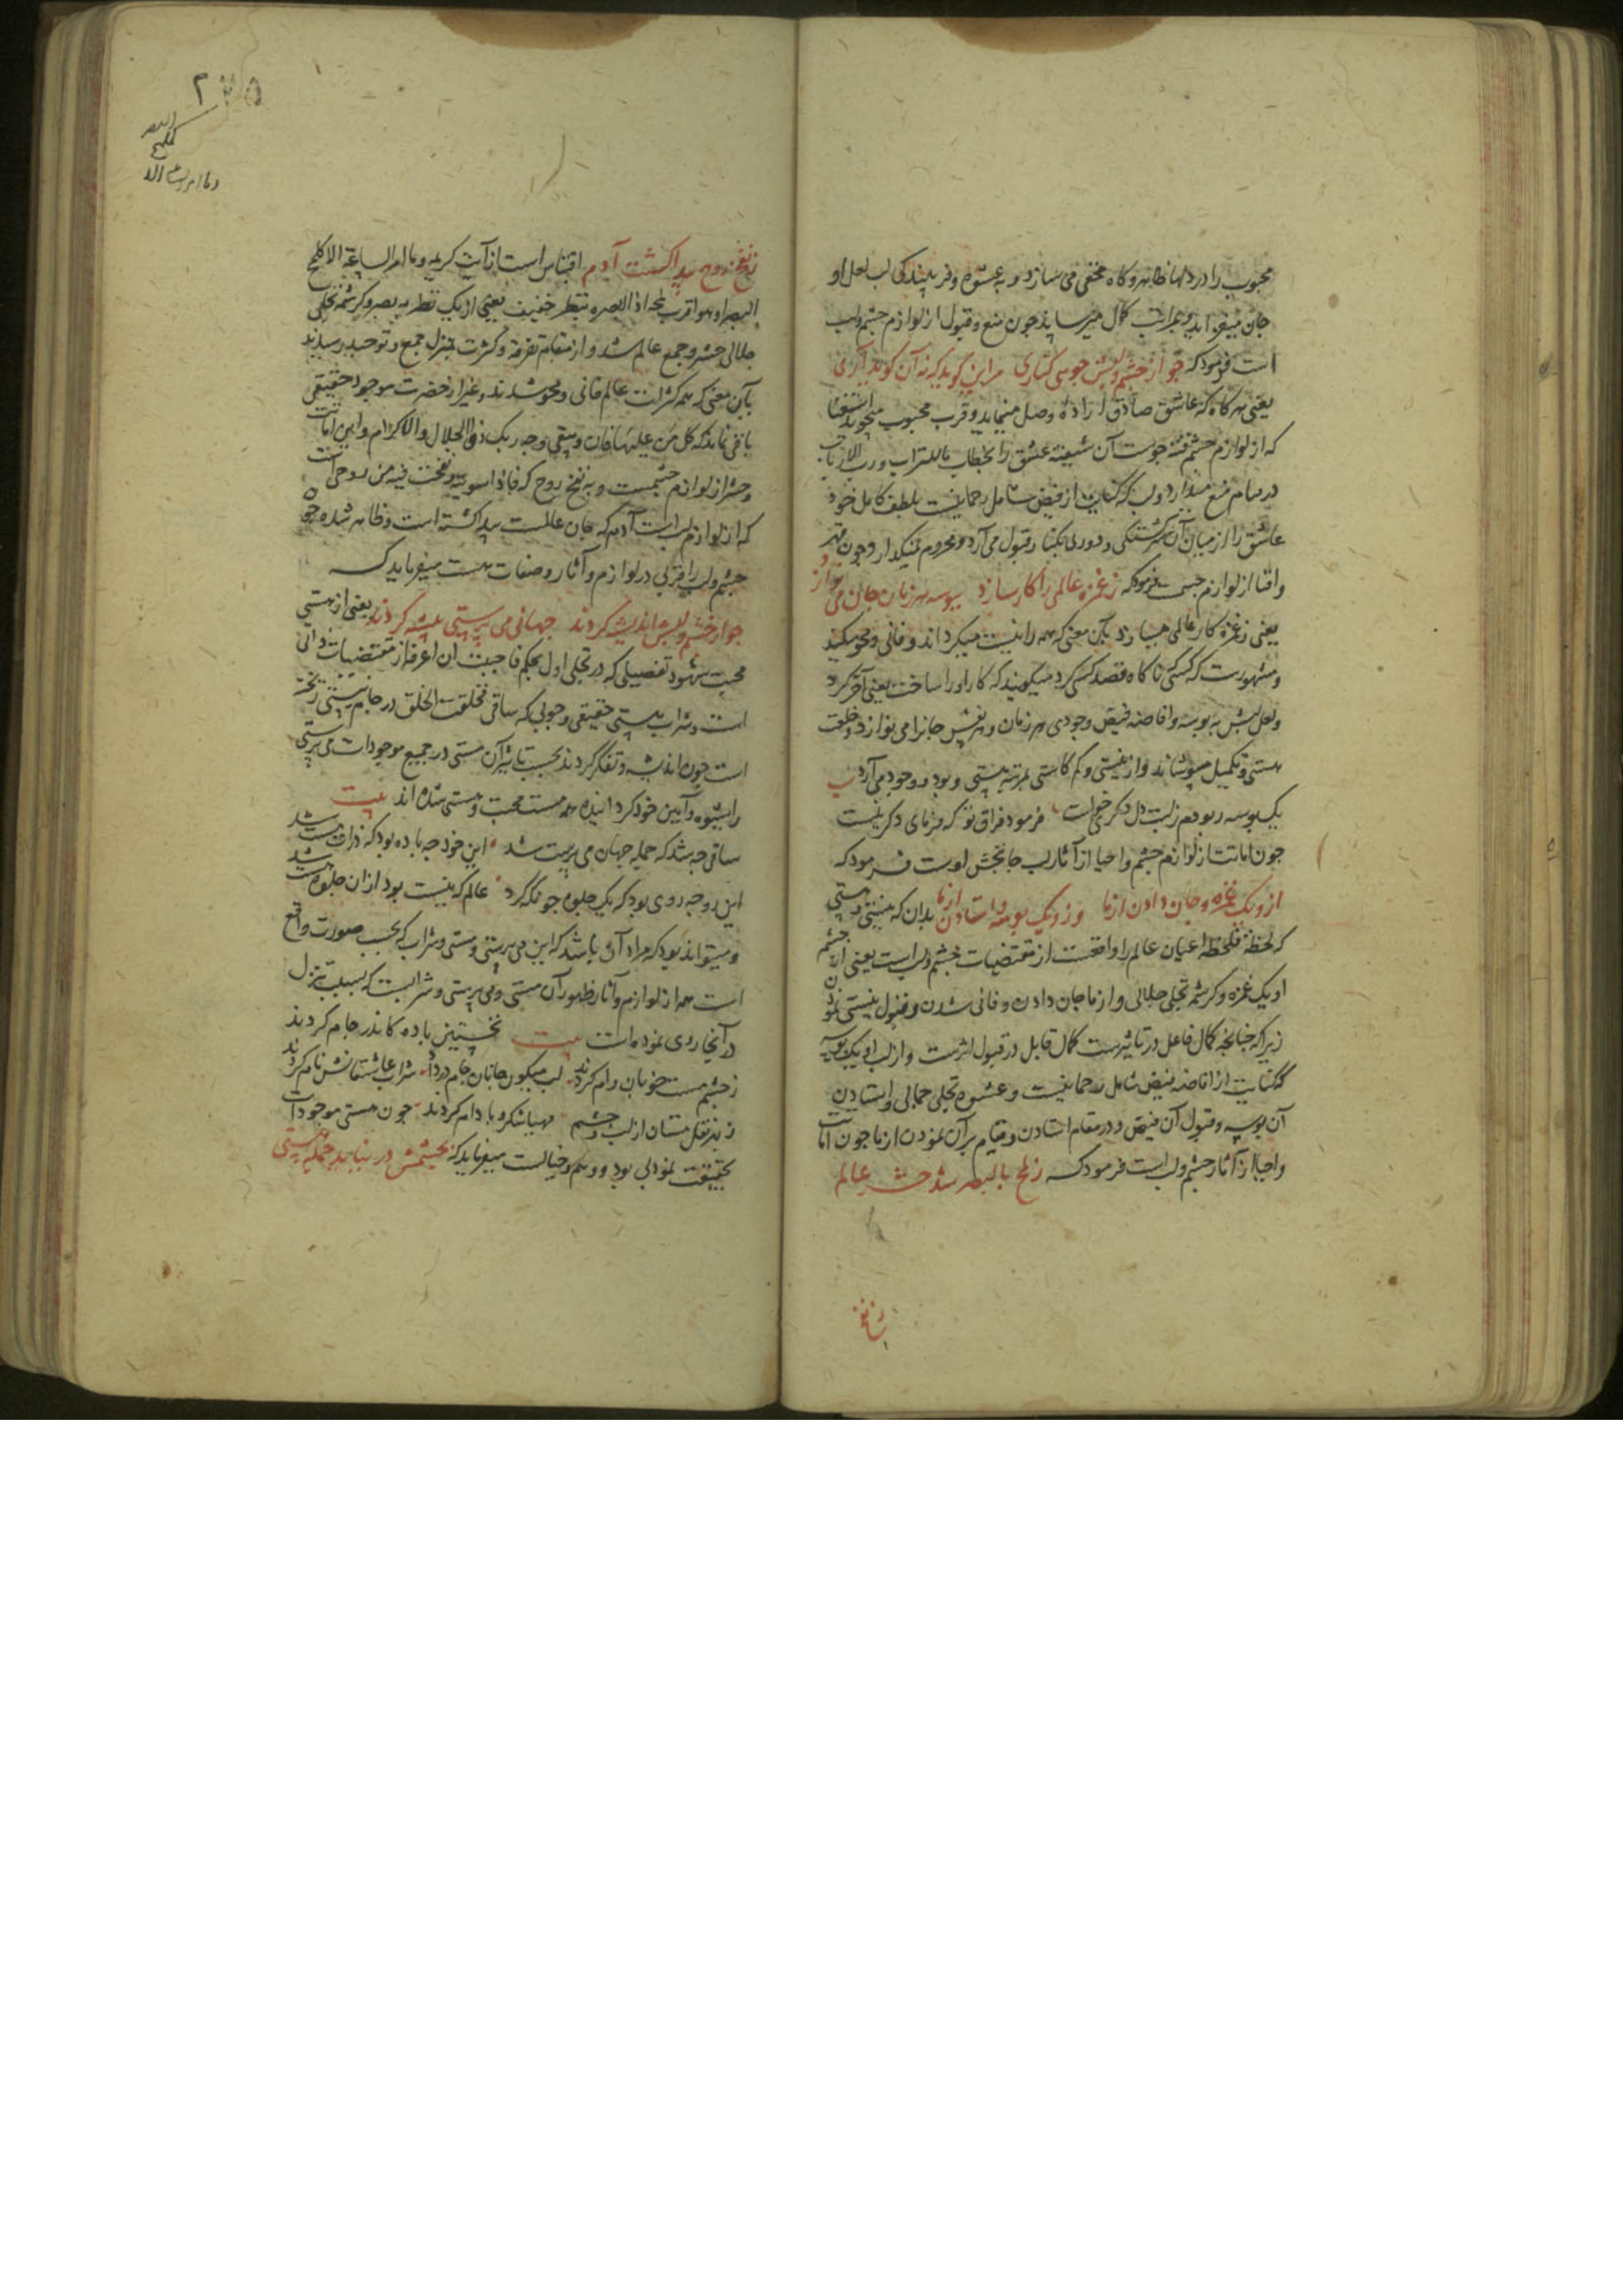 محبوب را در دلها ظاهر و کاه مخفی می سازد و به عشوه و فریبندکی لب لعل او
جان میفزاید و بمراتب کمال میرساند چون منع و قبول از لوازم چشم و لب
است فرمود که چو از چشم و لبش جویی کناری مر این کوید که نه آن کوید آری
یعنی هرکاه که عاشق صادق ارادهٔ وصل مینماید و قرب محبوب میجوید استغنا
که از لوازم چشم فتنه جوست آن شیفتهٔ عشق را بخطاب ماللتراب و رب الارباب
در مقام منع میدارد و لب که کنایت از فیض شامل رحمانیت بلطف کامل خود
عاشق را از میان آن سرکشتکی و دوری بکنار قبول می آرد و محروم نمیکذارد و چون قهر
و افنا از لوازم چشمست فرمود که ز غمزه عالمی را کار سازد ببوسه هر زمان جان می نوازد
یعنی ز غمزه کار عالمی میسازد بآن معنی که همه را نیست میکرداند و فانی و محو میکند
و مشهورست که کسی ناکاه قصد کسی کرد میکویند که کار او را ساخت یعنی آخر کرد
و لعل لبش به بوسه و افاضه فیض وجودی هر زمان و هر نفس جانرا می نوازد و خلعت
هستی و تکمیل میپوشاند و از نیستی و کم کاستی بمرتبه هستی و بود و وجود می آرد بیت
یک بوسه ربودم ز لبت دل دکر خواست فرمود فراق تو که فرمای دکر نیست
چون اماتت از لوازم چشم و احیا از آثار لب جانبخش اوست فرمود که
ازو یک غمزه و جان دادن از ما وزو یک بوسه و استادن از ما بدان که نیستی و هستی
که لحظه فلحظه اعیان عالم را واقعست از مقتضیات چشم و لب است یعنی از چشم
او یک غمزه و کرشمه تجلی جلالی و از ما جان دادن و فانی شدن و قبول نیستی نمودن
زیرا که چنانچه کمال فاعل در تاثیرست کمال قابل در قبول اثرست و از لب او یک بوسه
که کنایت از افاضه فیض شامل رحمانیست و عشوه تجلی جمالی و استادن
آن بوسه و قبول آن فیض و در مقام استادن و قیام بر آن نمودن از ما چون اماتت
و احیا از آثار چشم و لب است فرمود که ز لمح بالبصر شد حشر عالم
ز نفخ
ز نفخ روح پیدا کشت آدم اقتباس است از آیت کریمه و ما امر الساعة الا کلمح
البصر او هو اقرب لمح اذا ابصره بنظر خفیف یعنی از یک نظر به بصر و کرشمه تجلی
جلالی حشر و جمع عالم شد و از مقام تفرقه و کثرت بمنزل جمع و توحید رسیدند
بآن معنی که همه کثرات عالم فانی و محو شدند و غیر از حضرت موجود حقیقی
باقی نماند که کل من علیها فان و یبقی وجه ربک ذو الجلال و الاکرام و این اماتت
و حشر از لوازم چشمست و به نفخ روح که فاذا سویته و نفخت فیه من روحی است
که از لوازم لب است آدم که جان عالمست پیدا کشته است و ظاهر شده چون
چشم و لب را قربی در لوازم و آثار و صفات هست میفرماید که
چو از چشم و لبش اندیشه کردند جهانی می پرستی پیشه کردند یعنی از هستی
محبت شهود تفصیلی که در تجلی اول بحکم فاحببت ان اعرف از مقتضیات ذاتی
است و شراب هستی حقیقی وجوبی که ساقی فخلقت الخلق در جام هستی ریخته
است چون اندیشه و تفکر کردند بحسب تاثیر آن مستی در جمیع موجودات می پرستی
را شیوه و آیین خود کردانیده همه مست محبت و هستی شده اند بیت
ساقی چه شد که جمله جهان می پرست شد این خود چه باده بود که ذرات مست شد
این روچه روی بود که یک جلوه چونکه کرد عالم که نیست بود از آن جلوه هست شد
و میتواند بود که مراد آن باشد که این می پرستی و مستی و شراب که بحسب صورت واقع
است همه از لوازم و آثار ظهور آن مستی و می پرستی و شرابست که بسبب تنزل
در آنجا روی نموده است بیت نخستین باده کاندر جام کردند
ز چشم مست خوبان وام کردند لب میکون جانان جام در داد شراب عاشقانش نام کردند
ز بهر نقل مستان از لب و چشم مهیا شکر و بادام کردند چون هستی موجودات
بحقیقت نمود بی بود و وهم و خیالست میفرماید که بچشمش در نیاید جمله هستی